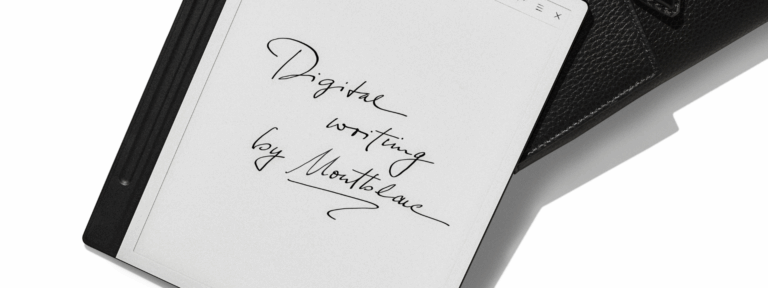 Digital
writing
by Montblanc